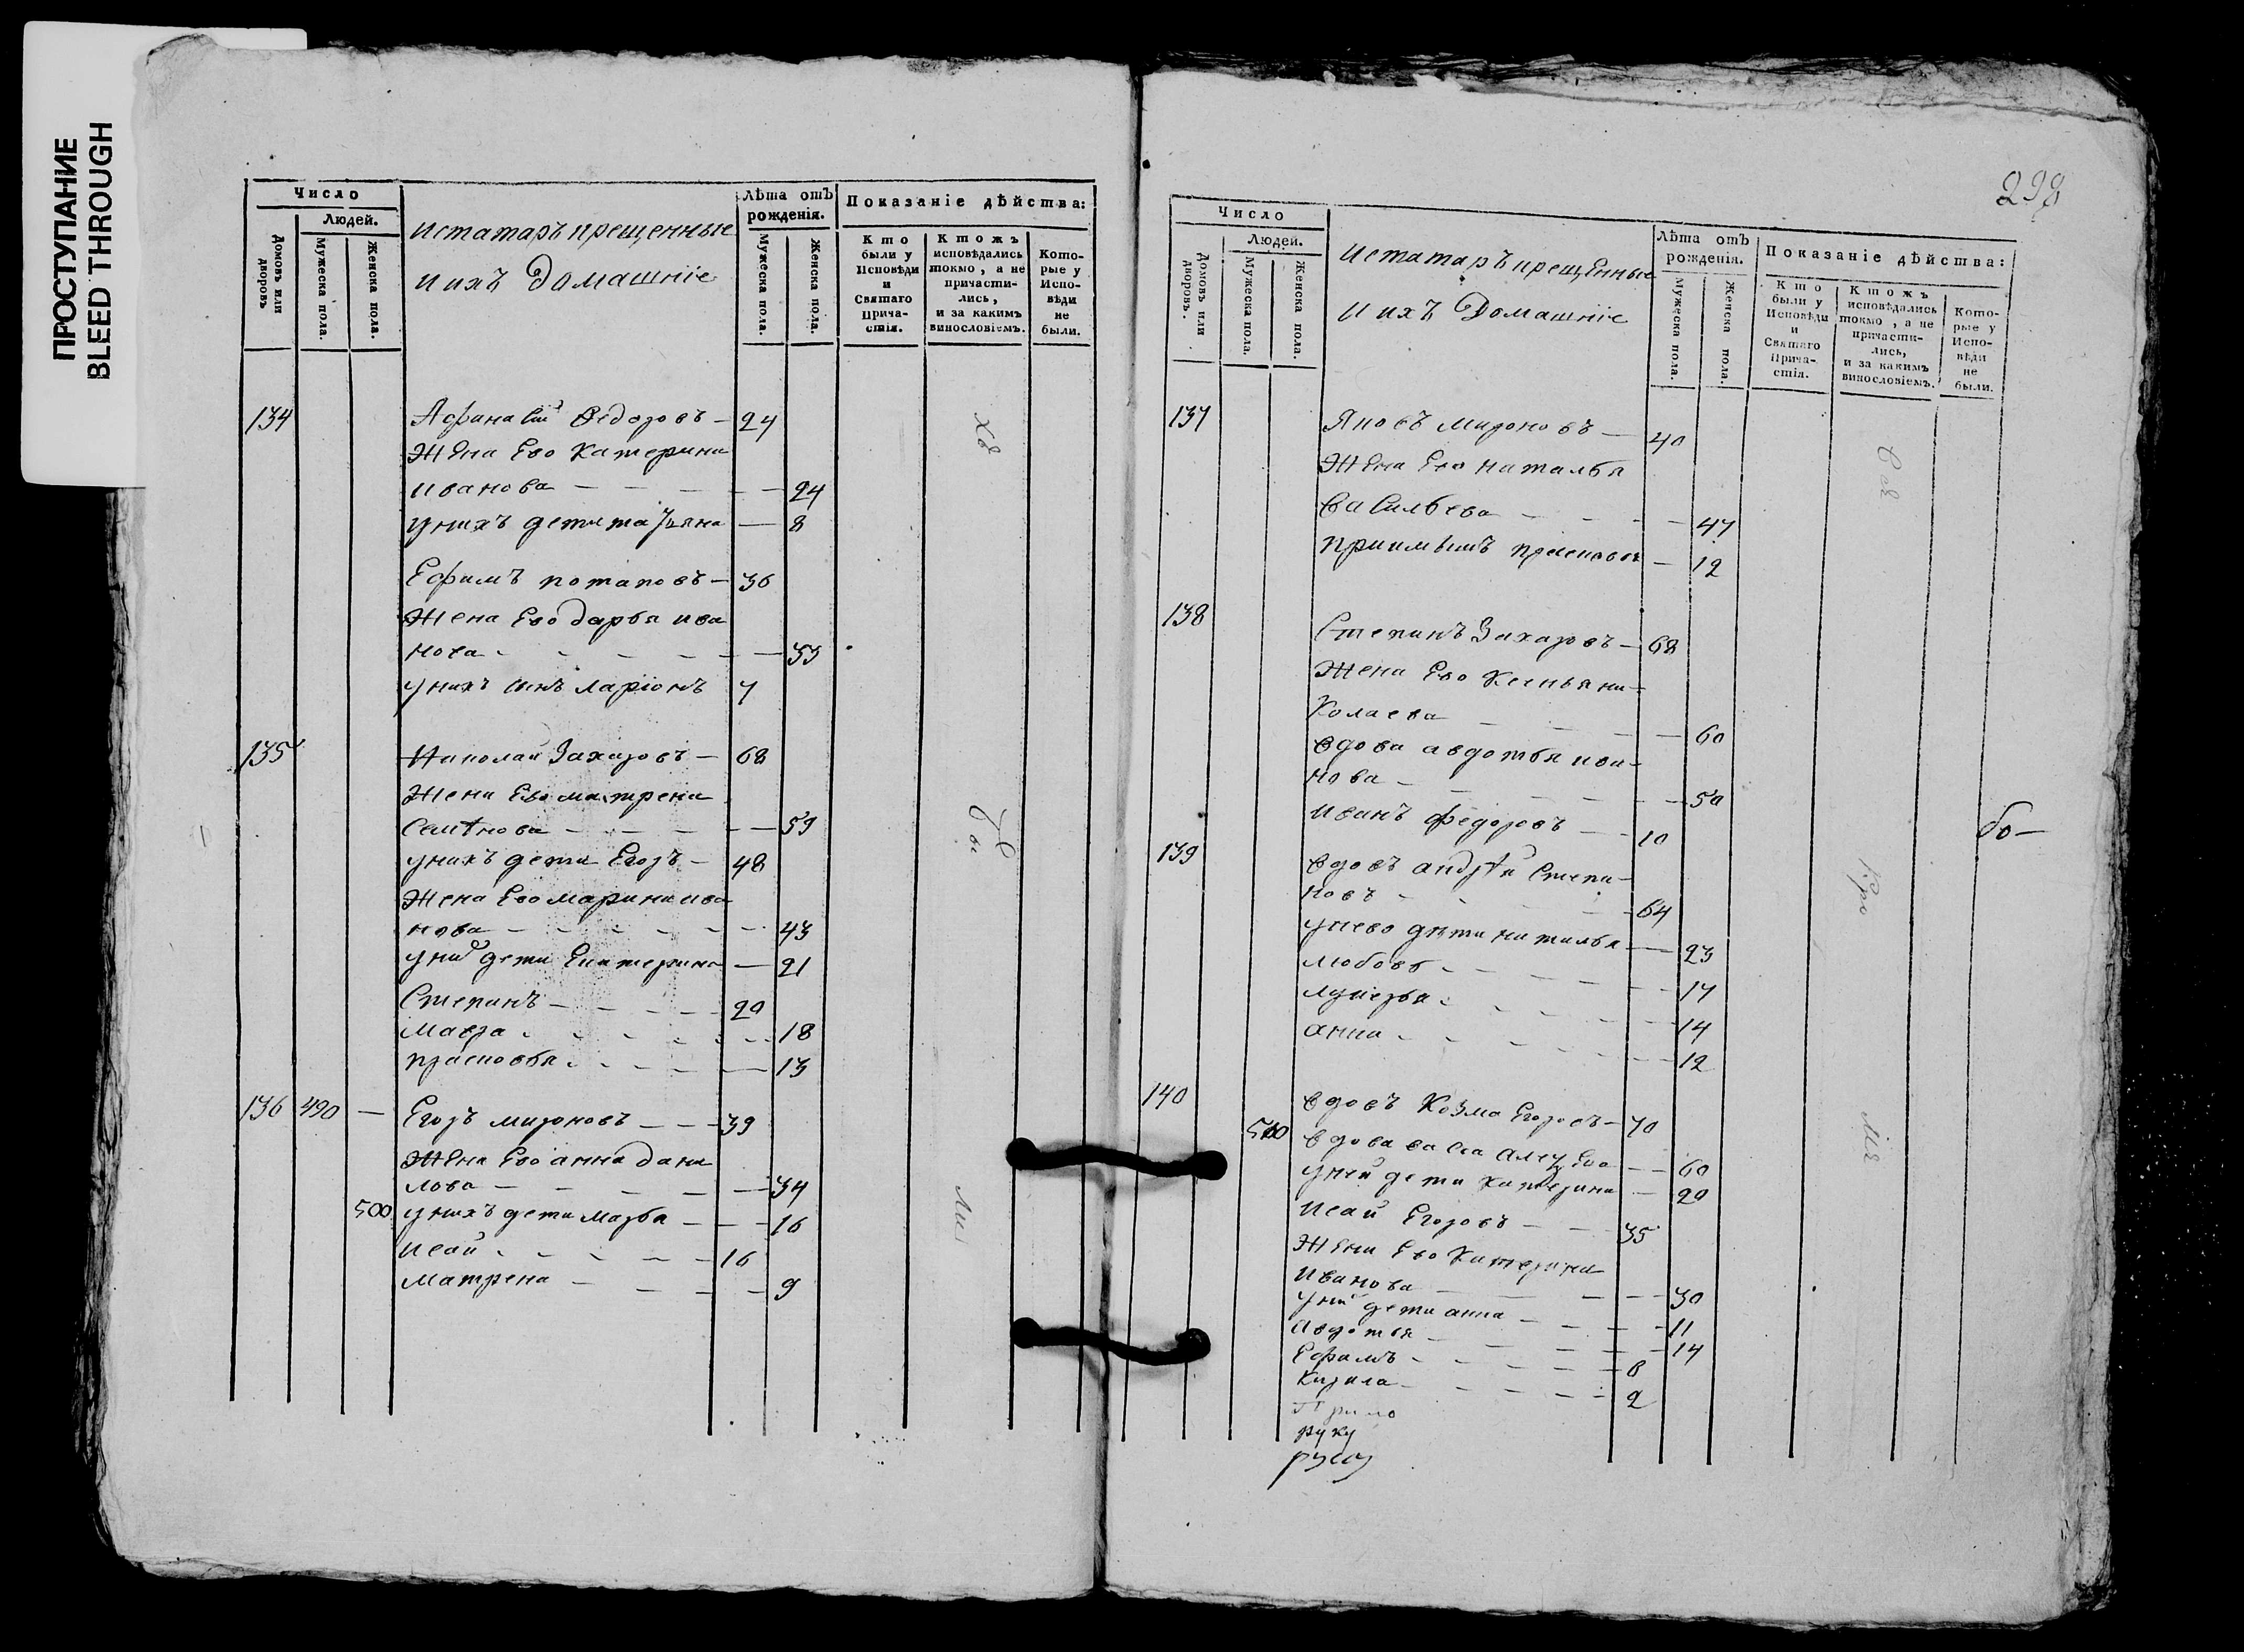 ПРОСТУПАНИЕ
BLEED THROUGH
Число
Людей.
Домовъ или дворовъ
Мужеска пола.
Женска пола.
Истатаръ крещенные
и ихъ Домашніе
Лѣта отъ рожденія.
Мужеска пола.
Женска пола.
Показаніе дѣйства:
Кто были у Исповѣди и Святаго Прича-стія.
Ктожъ исповѣдались токмо, а не причасти-лись, и за какимъ винословіемъ.
Кото-рые у Испо-вѣди не были.
134 Афанасій Федоровъ — 24
Жена Ево Катерина
Иванова — 24
унихъ дети татьяна — 8
Ефимъ потаповъ — 36
Жена Ево дарья ива
нова — 33
унихъ сынъ ларіонъ 7
135 Николай Захаровъ — 68
Жена Ево матрена
Семѣнова — 59
унихъ дети Егоръ — 48
Жена Ево марина ива
нова — 43
уний дети Екатерина — 21
Степанъ — 20
Мавра — 18
прасковья — 13
136 490 — Егоръ мироновъ — 39
Жена Ево анна дани
лова — 34
500 унихъ дети марья — 16
Исай — 16
Матрена — 9
298
Число
Людей.
Домовъ или дворовъ.
Мужеска пола.
Женска пола.
Истатаръ крещенные
и ихъ Домашніе
Лѣта отъ рожденія.
Мужеска пола.
Женска пола.
Показаніе дѣйства:
Кто были у Исповѣди и Святаго Прича-стія.
Ктожъ исповѣдались токмо, а не причасти-лись, и за какимъ винословіемъ.
Кото-рые у Испо-вѣди не были.
137 Яковъ мироновъ — 40
Жена Ево наталья
Васильева — 47
приимышъ — 12
138 Степанъ Захаровъ — 68
Жена Ево Ксенья ни-
Колаева — 60
вдова авдотья ива-
нова — 50
Иванъ федоровъ — 10
139 вдовъ андрѣй Степа-
новъ — 64
унево дѣти наталья — 23
любовь — 17
лукерья — 14
анна — 12
140 вдовъ Козма Егоровъ — 70
500 вдова васса — 60
уней дети катерина — 20
Исай Егоровъ — 35
Жена Ево Катерина
Иванова — 30
уний дети анна — 11
авдотья — 14
Ефимъ — 8
Кирила — 2
руку